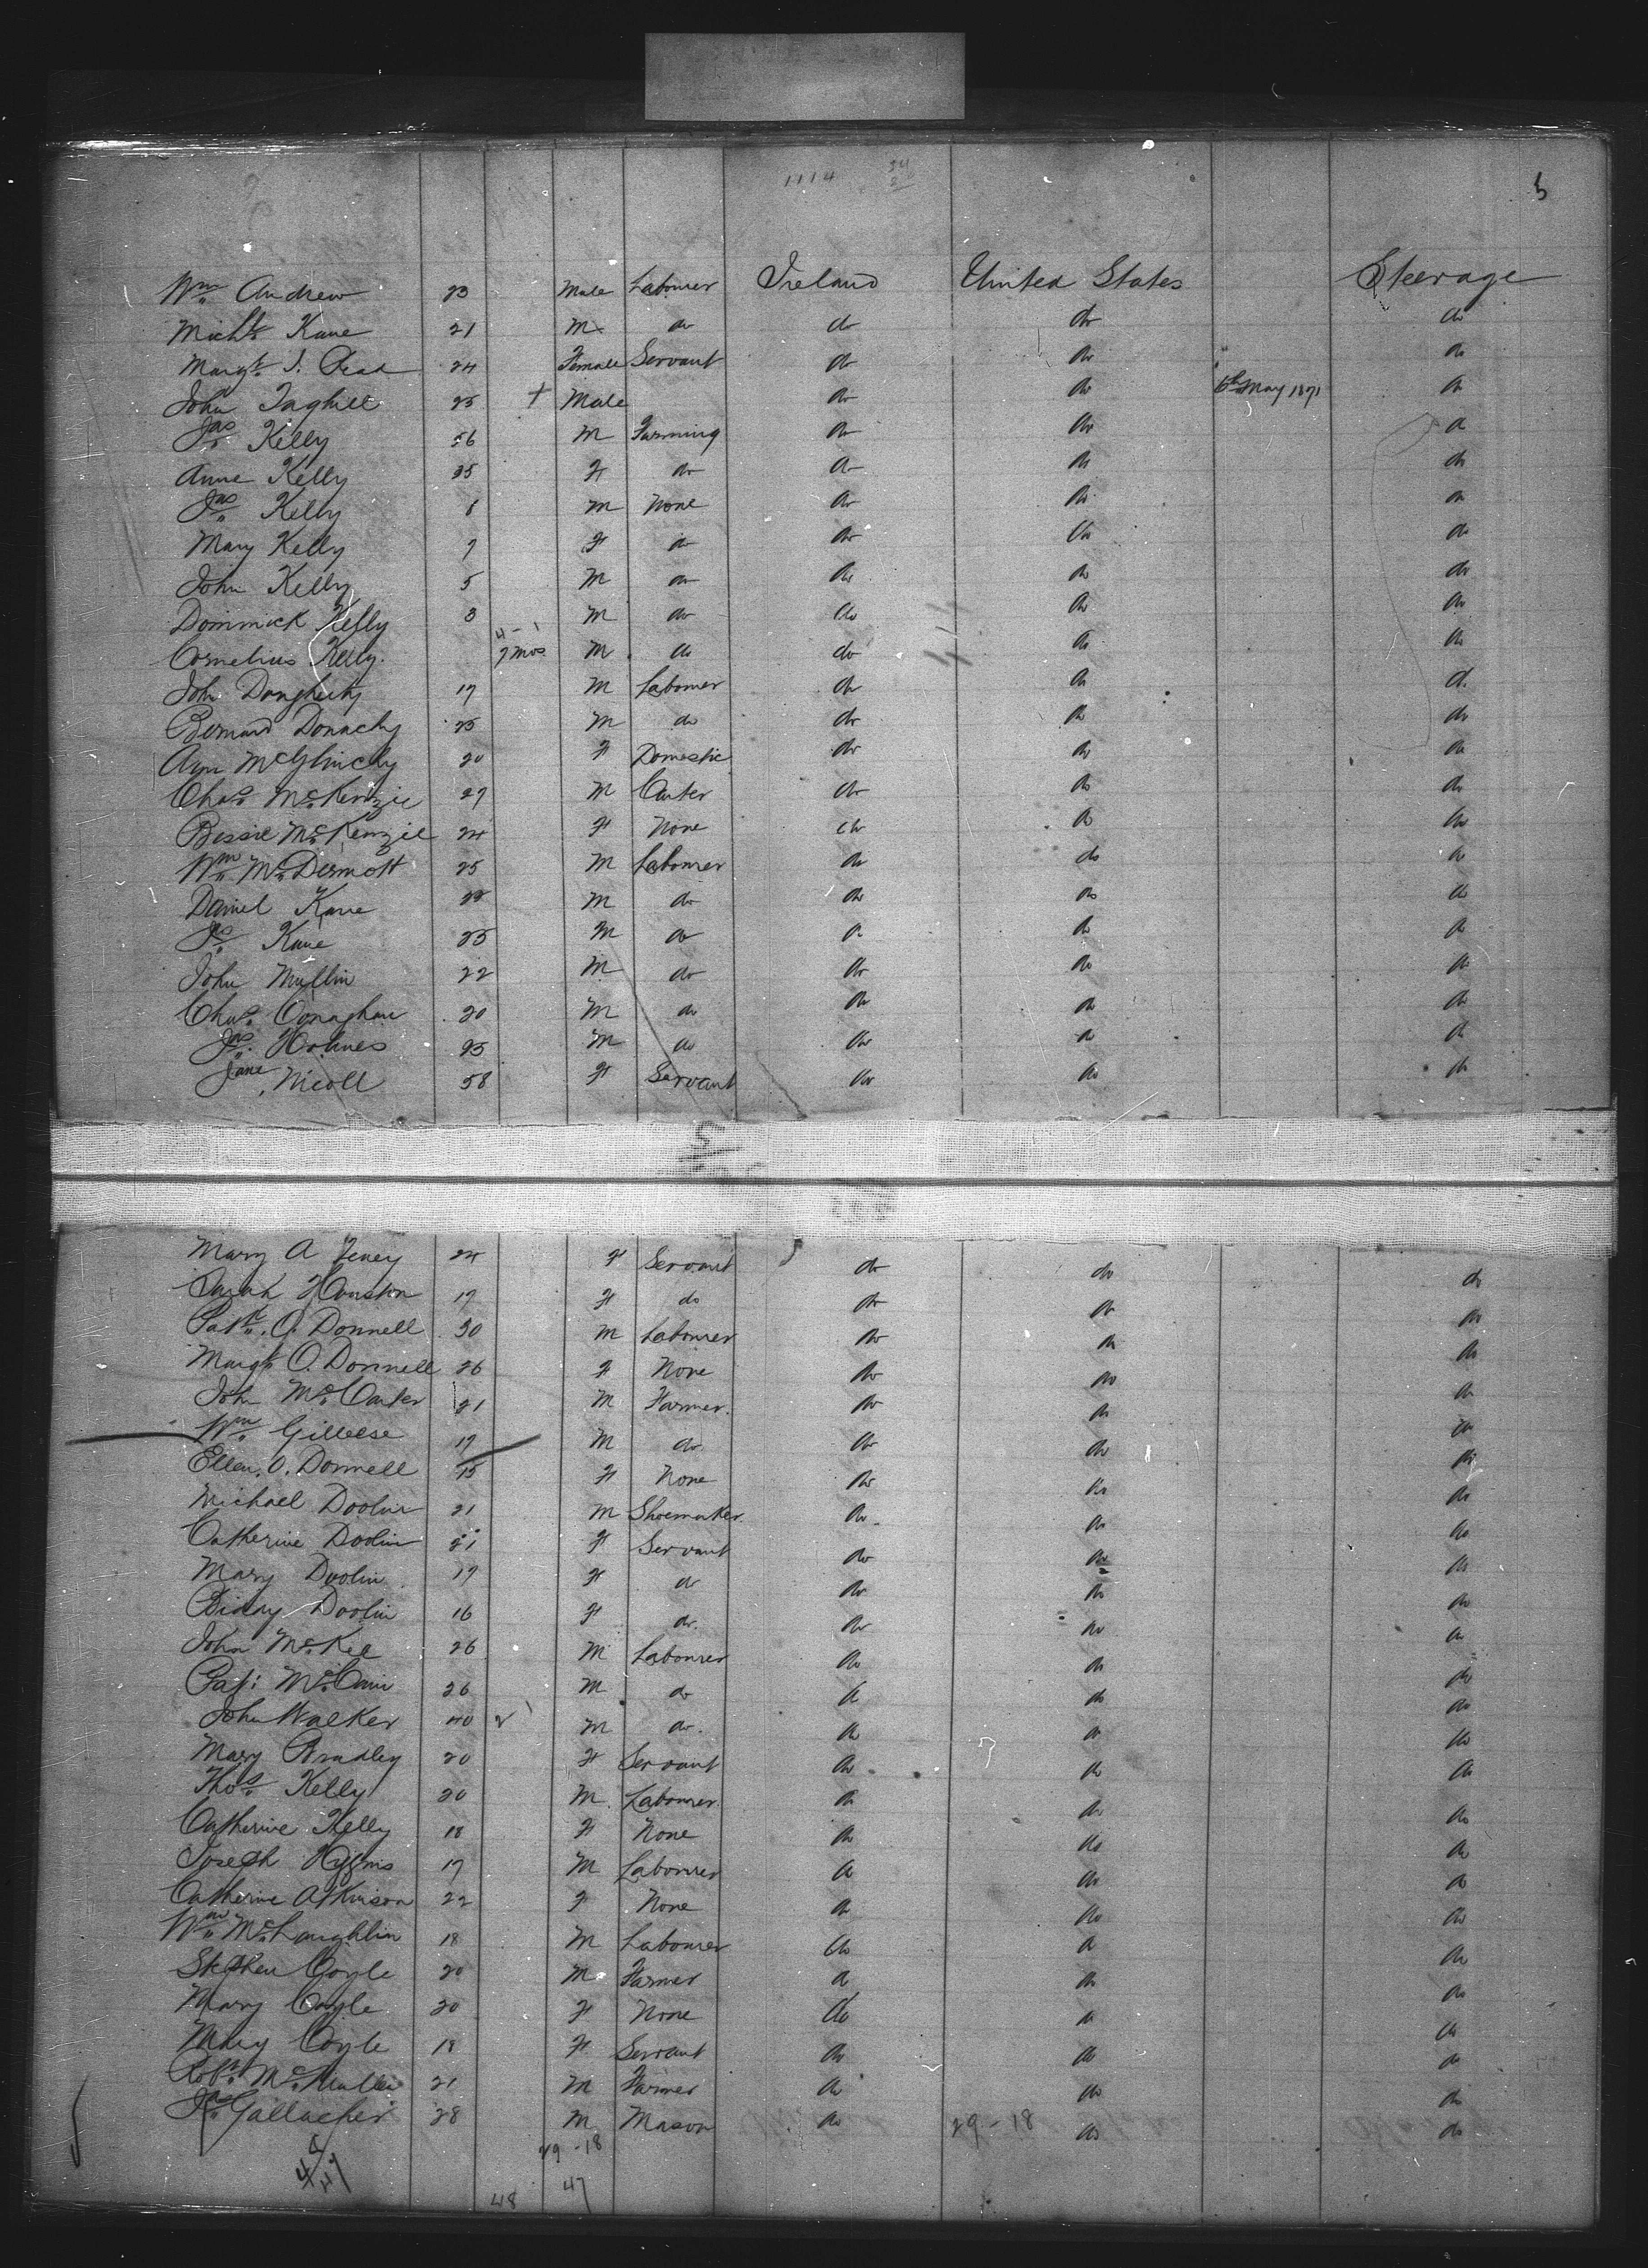 1114 34
2
5
Wm Andrew 23 Male Labourer Ireland United States Steerage
Michl Kane 21 M do do do do
Margt J. 24 Female Servant do do do
John Taghill 25 + Male do do 6th May 1871 do
Jas Kelly 56 M Farming do do do
Anne Kelly 35 F do do do do
Jas Kelly 8 M None do do do
Mary Kelly 7 F do do do do
John Kelly 5 M do do do do
Dominick Kelly 3 M do do do do
Cornelius Kelly 7 mos M do do do do
John Dougherty 19 M Labourer do do do
Bernard Donachy 25 M do do do do
Ann McGlinchy 20 F Domestic do do do
Chas. McKenzie 27 M Carter do do do
Bessie McKenzie 24 F None do do do
Wm McDermott 25 M Labourer do do do
Daniel Kane M do do do do
Jas Kane 25 M do do do do
John Mullin 22 M do do do do
Chas. Conaghan 20 M do do do do
Jas. Holmes 25 M do do do do
Jane Nicoll 58 F Servant do do do
Mary A 24 F Servant do do do
Sarah Houston 19 F do do do do
Patk. O. Donnell 30 M Labourer do do do
Margt O. Donnell 26 F None do do do
John McCarter 21 M Farmer do do do
Wm Gilleese 19 M do do do do
Ellen O. Donnell 15 F None do do do
Michael Doolin 21 M Shoemaker do do do
Catherine Doolin 21 F Servant do do do
Mary Doolin 19 F do do do do
Biddy Doolin 16 F do do do do
John McKee 26 M Labourer do do do
Pat: 26 M do do do do
John Walker 40 M do do do do
Mary Bradley 20 F Servant do do do
Thos Kelly 20 M Labourer do do do
Catherine Kelly 18 F None do do do
Joseph Higgins 17 M Labourer do do do
Catherine Atkinson 22 F None do do do
Wm McLaughlin 18 M Labourer do do do
Stephen Coyle 20 M Farmer do do do
Mary Coyle 20 F None do do do
Mary Coyle 18 F Servant do do do
Robt. McMullin 21 M Farmer do do do
Jas Gallacher 28 M Mason do do do
29-18 29-18
48 47